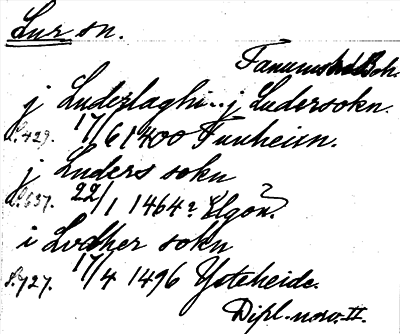 Lur sn.
Tanums hd Boh.
j Luderlaghi.. j Ludersokn.
S. 429. 17/6 1400 Tunheim.
j Luders sokn
S. 637. 22/1 1464? Elgön?
i Lvdher sokn
S. 727. 17/4 1496 Ysteheide.
Dipl. norv. II.